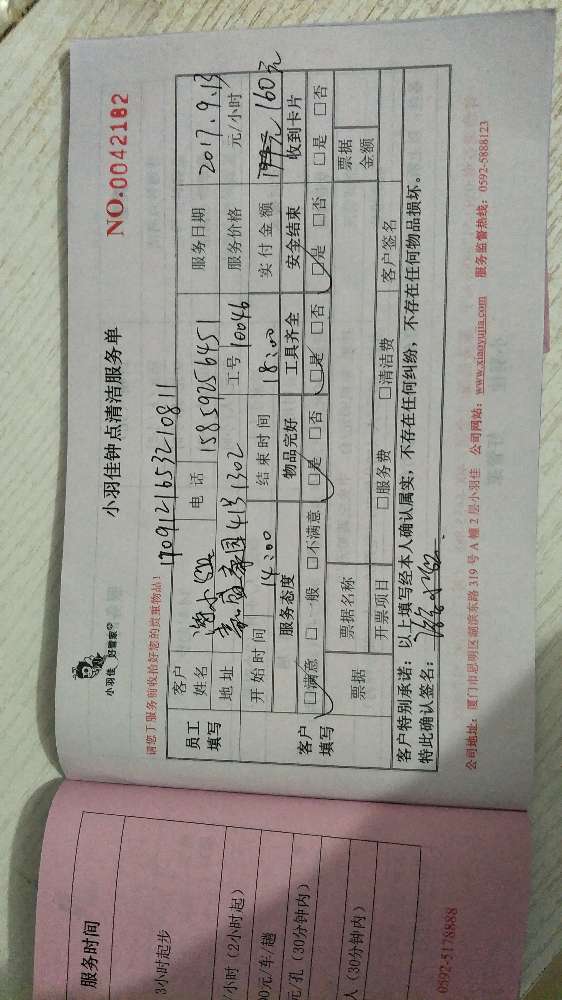 小羽佳 好管家
小羽佳钟点清洁服务单
NO.0042182
请您于服务前收拾好您的贵重物品!
1709121653210811
员工填写
客户姓名
电话 15859256451
服务日期 2017.9.13
地址 413 1302
工号 10046
服务价格 元/小时
开始时间 14:00
结束时间 18:00
实付金额 160元
客户填写
服务态度 物品完好 工具齐全 安全结束 收到卡片
□满意 □一般 □不满意 □是 □否 □是 □否 □是 □否 □是 □否
票据 票据名称 票据金额
开票项目 □服务费 □清洁费 客户签名
客户特别承诺: 以上填写经本人确认属实,不存在任何纠纷,不存在任何物品损坏。
特此确认签名:
公司地址: 厦门市思明区湖滨东路 319 号 A 幢 2 层小羽佳 公司网站: www.xiaoyujia.com 服务监督热线: 0592-5888123
服务时间
3小时起步
/小时(2小时起)
00元/车/趟
元/孔(30分钟内)
人(30分钟内)
0592-5178888